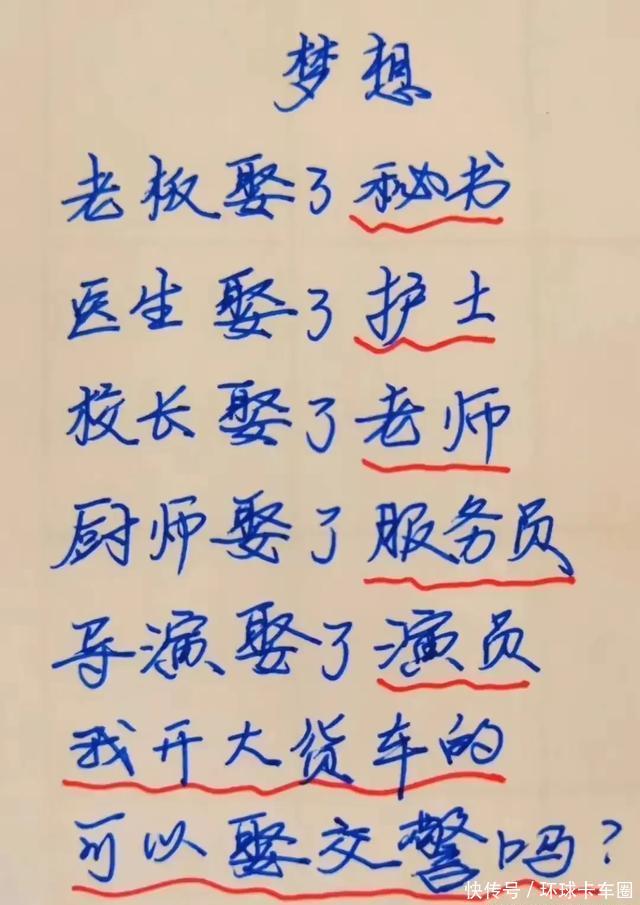 梦想
老板娶了秘书
医生娶了护士
校长娶了老师
厨师娶了服务员
导演娶了演员
我开大货车的
可以娶交警吗?
快传号/环球卡车圈